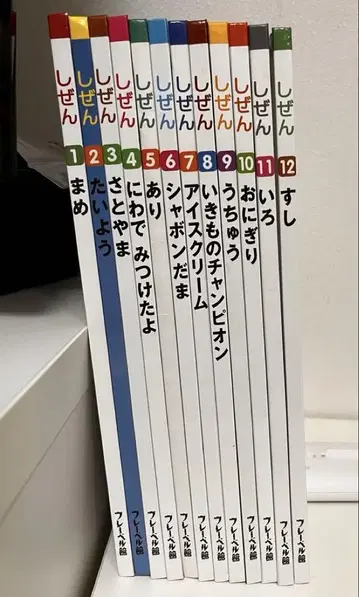 しぜん 1 まめ フレーベル館
しぜん 2 たいよう フレーベル館
しぜん 3 さとやま フレーベル館
しぜん 4 にわで みつけたよ フレーベル館
しぜん 5 あり フレーベル館
しぜん 6 シャボンだま フレーベル館
しぜん 7 アイスクリーム フレーベル館
しぜん 8 いきものチャンピオン フレーベル館
しぜん 9 うちゅう フレーベル館
しぜん 10 おにぎり フレーベル館
しぜん 11 いろ フレーベル館
しぜん 12 すし フレーベル館